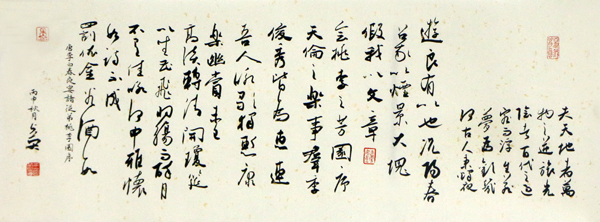 夫天地者萬
物之逆旅光
陰者百代之過
客而浮生若
夢為歡幾
何古人秉燭夜
遊良有以也況陽春
召我以煙景大塊
假我以文章
會桃李之芳園序
天倫之樂事群季
俊秀皆為惠連
吾人詠歌獨慚康
樂幽賞未已
高談轉清開瓊筵
以坐花飛羽觴而醉月
不有佳詠何伸雅懷
如詩不成
罰依金谷酒數
唐李白春夜宴諸從弟桃李園序
丙申秋月